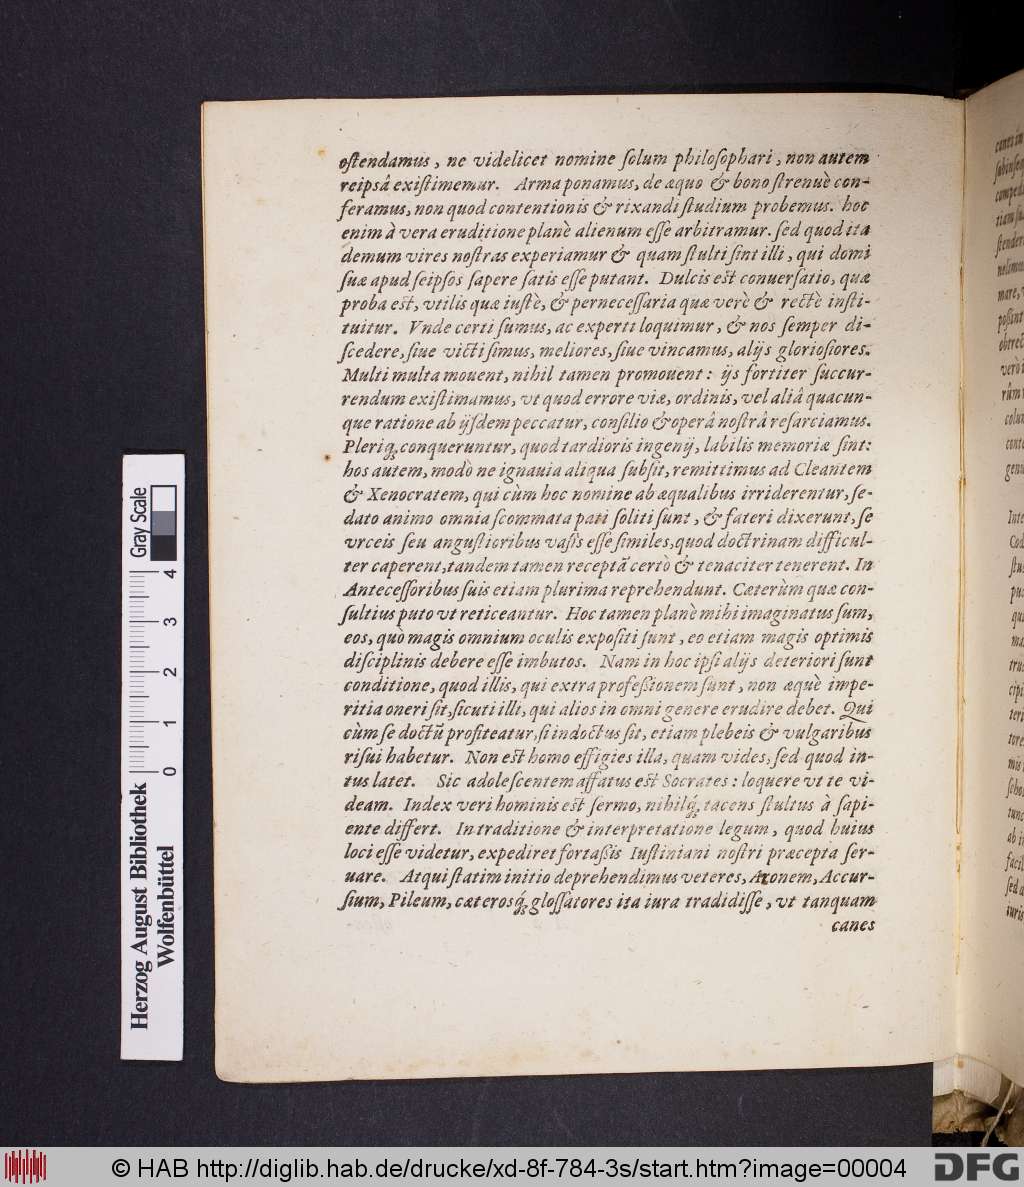 ostendamus, ne videlicet nomine solum philosophari, non autem
reipsâ existimemur. Arma ponamus, de æquo & bono strenuè con-
feramus, non quod contentionis & rixandi studium probemus. hoc
enim à vera eruditione planè alienum esse arbitramur. sed quod ita
demum vires nostras experiamur & quam stulti sint illi, qui domi
suæ apud seipsos sapere satis esse putant. Dulcis est conuersatio, quæ
proba est, vtilis quæ iustè, & pernecessaria quæ verè & rectè insti-
tuitur. Vnde certi sumus, ac experti loquimur, & nos semper di-
scedere, siue victi simus, meliores, siue vincamus, alijs gloriosiores.
Multi multa mouent, nihil tamen promouent: ijs fortiter succur-
rendum existimamus, vt quod errore viæ, ordinis, vel aliâ quacun-
que ratione ab ijsdem peccatur, consilio & operâ nostrâ resarciamus.
Pleriq́; conqueruntur, quod tardioris ingenij, labilis memoriæ sint:
hos autem, modò ne ignauia aliqua subsit, remittimus ad Cleantem
& Xenocratem, qui cùm hoc nomine ab æqualibus irriderentur, se-
dato animo omnia scommata pati soliti sunt, & fateri dixerunt, se
vrceis seu angustioribus vasis esse similes, quod doctrinam difficul-
ter caperent, tandem tamen receptã certò & tenaciter tenerent. In
Antecessoribus suis etiam plurima reprehendunt. Cæterùm quæ con-
sultius puto vt reticeantur. Hoc tamen planè mihi imaginatus sum,
eos, quò magis omnium oculis expositi sunt, eo etiam magis optimis
disciplinis debere esse imbutos. Nam in hoc ipsi alijs deteriori sunt
conditione, quod illis, qui extra professionem sunt, non æquè impe-
ritia oneri sit, sicuti illi, qui alios in omni genere erudire debet. Qui
cùm se doctũ profiteatur, si indoctus sit, etiam plebeis & vulgaribus
risui habetur. Non est homo effigies illa, quam vides, sed quod in-
tus latet. Sic adolescentem affatus est Socrates: loquere vt te vi-
deam. Index veri hominis est sermo, nihilq́; tacens stultus à sapi-
ente differt. In traditione & interpretatione legum, quod huius
loci esse videtur, expediret fortassis Iustiniani nostri præcepta ser-
uare. Atqui statim initio deprehendimus veteres, Azonem, Accur-
sium, Pileum, cæterosq́; glossatores ita iura tradidisse, vt tanquam
canes
Herzog August Bibliothek
Wolfenbüttel
0 1 2 3 4
Gray Scale
© HAB http://diglib.hab.de/drucke/xd-8f-784-3s/start.htm?image=00004
DFG